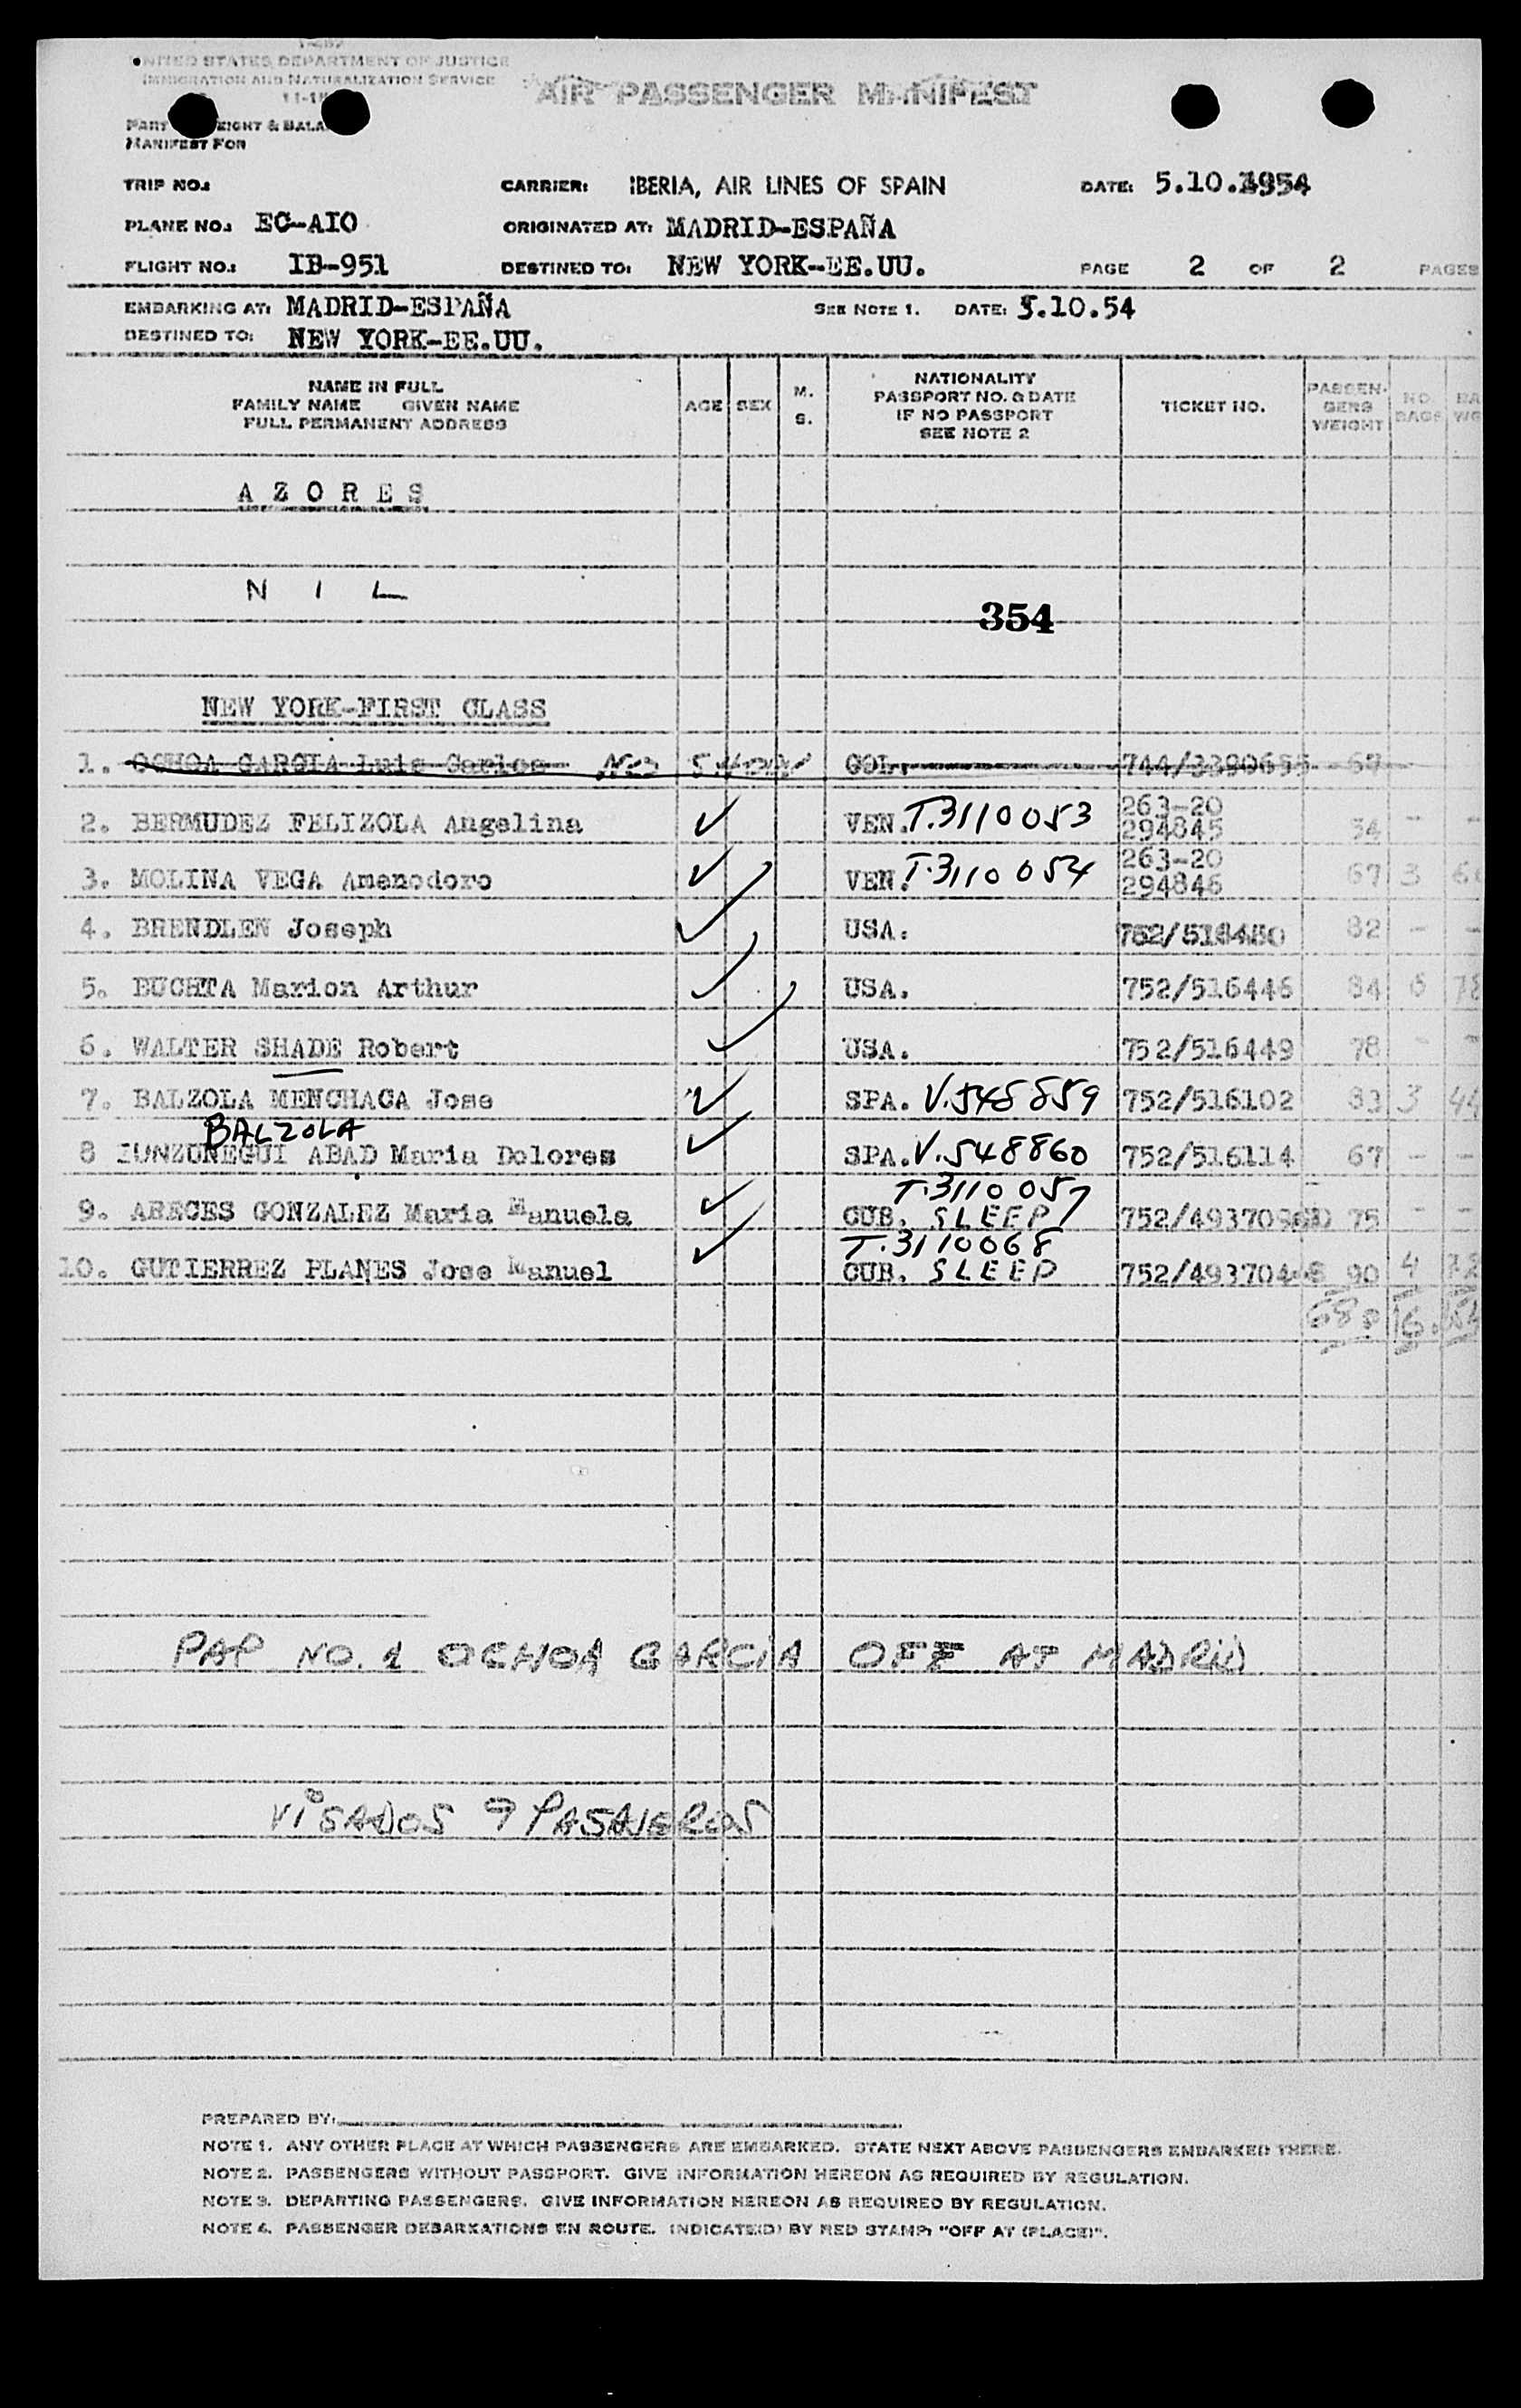 UNITED STATES DEPARTMENT OF JUSTICE
IMMIGRATION AND NATURALIZATION SERVICE
AIR PASSENGER MANIFEST
MANIFEST FOR
TRIP NO.: CARRIER: IBERIA, AIR LINES OF SPAIN DATE: 5.10.1954
PLANE NO.: EC-AIO ORIGINATED AT: MADRID-ESPAÑA
FLIGHT NO.: IB-951 DESTINED TO: NEW YORK-EE.UU. PAGE 2 OF 2 PAGES
EMBARKING AT: MADRID-ESPAÑA SEE NOTE 1. DATE: 5.10.54
DESTINED TO: NEW YORK-EE.UU.
NAME IN FULL
FAMILY NAME GIVEN NAME
FULL PERMANENT ADDRESS
AGE SEX M. S.
NATIONALITY
PASSPORT NO. & DATE
IF NO PASSPORT
SEE NOTE 2
TICKET NO.
PASSENGERS WEIGHT
NO. BAGS
AZORES
NIL
354
NEW YORK-FIRST CLASS
1. OCHOA GARCIA Luis Carlos NO SHOW COL. 67
2. BERMUDEZ FELIZOLA Angelina VEN. T.3110053 263-20 294845 54 -
3. MOLINA VEGA Amenodoro VEN. T.3110054 263-20 294846 67 3
4. BRENDLEN Joseph USA. 82 -
5. BUCHTA Marion Arthur USA. 752/516446 84 6 78
6. WALTER SHADE Robert USA. 752/516449 78 -
7. BALZOLA MENCHACA Jose SPA. V.548859 752/516102 83 3 44
BALZOLA
8 ZUNZUNEGUI ABAD Maria Dolores SPA. V.548860 752/516114 67 - -
T.3110057
9. ARECES GONZALEZ Maria Manuela CUB. SLEEP 75 - -
T.3110068
10. GUTIERREZ PLANES Jose Manuel CUB. SLEEP 90 4
680 16
PAP NO. 1 OCHOA GARCIA OFF AT MADRID
VISADOS 9 PASAJEROS
PREPARED BY:
NOTE 1. ANY OTHER PLACE AT WHICH PASSENGERS ARE EMBARKED. STATE NEXT ABOVE PASSENGERS EMBARKED THERE.
NOTE 2. PASSENGERS WITHOUT PASSPORT. GIVE INFORMATION HEREON AS REQUIRED BY REGULATION.
NOTE 3. DEPARTING PASSENGERS. GIVE INFORMATION HEREON AS REQUIRED BY REGULATION.
NOTE 4. PASSENGER DEBARKATIONS EN ROUTE. INDICATE(D) BY RED STAMP: "OFF AT (PLACE)".